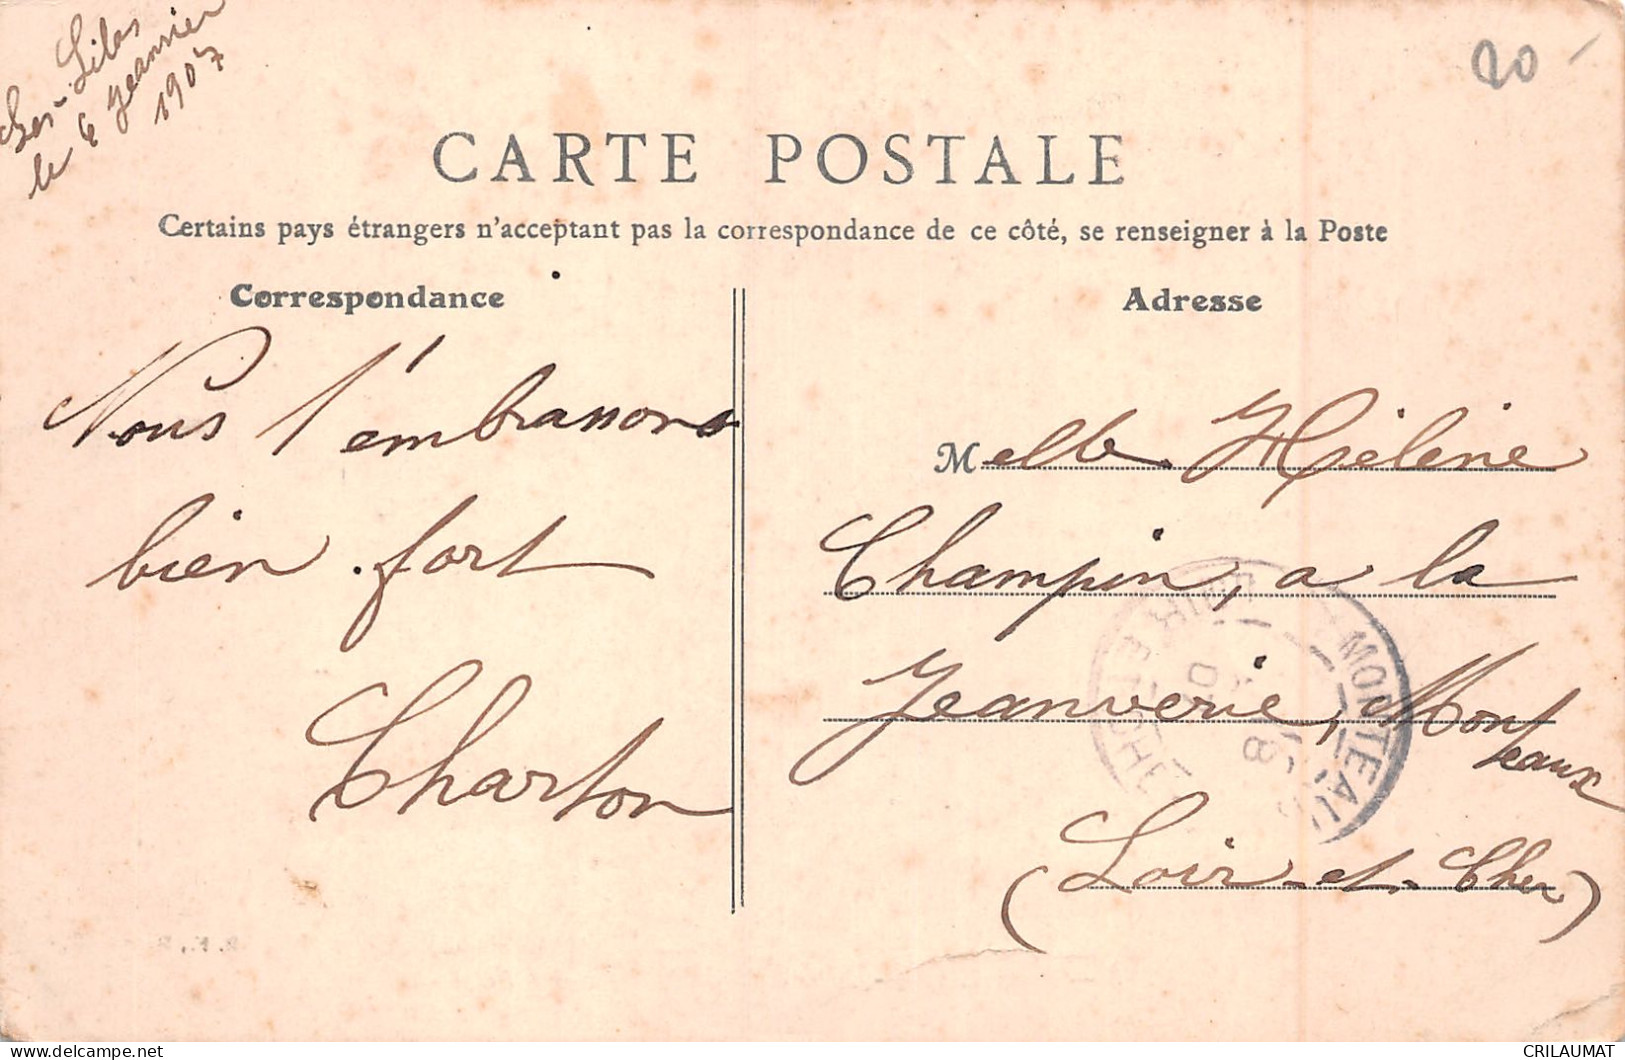 Les-Lilas
le 6 Jeanvier
1907
20
CARTE POSTALE
Certains pays étrangers n'acceptant pas la correspondance de ce côté, se renseigner à la Poste
Correspondance
Nous t'embrassons
bien fort
Charton
Adresse
Melle Hélène
Champin, a la
Jeanverie, Mont
eaux
(Loir-et-Cher)
MONTEAUX
LOIR ET CHER
CRILAUMAT